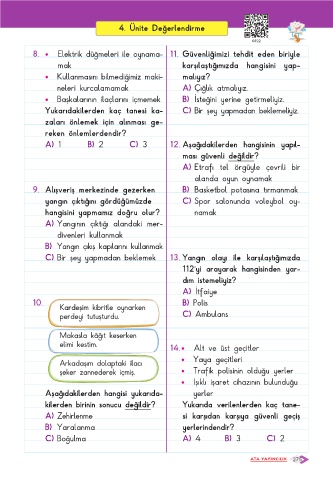 4. Ünite Değerlendirme
8. • Elektrik düğmeleri ile oynama-
mak
• Kullanmasını bilmediğimiz maki-
neleri kurcalamamak
• Başkalarının ilaçlarını içmemek
Yukarıdakilerden kaç tanesi ka-
zaları önlemek için alınması ge-
reken önlemlerdendir?
A) 1 B) 2 C) 3
9. Alışveriş merkezinde gezerken
yangın çıktığını gördüğümüzde
hangisini yapmamız doğru olur?
A) Yangının çıktığı alandaki mer-
divenleri kullanmak
B) Yangın çıkış kapılarını kullanmak
C) Bir şey yapmadan beklemek
10.
Kardeşim kibritle oynarken
perdeyi tutuşturdu.
Makasla kâğıt keserken
elimi kestim.
Arkadaşım dolaptaki ilacı
şeker zannederek içmiş.
Aşağıdakilerden hangisi yukarıda-
kilerden birinin sonucu değildir?
A) Zehirlenme
B) Yaralanma
C) Boğulma
11. Güvenliğimizi tehdit eden biriyle
karşılaştığımızda hangisini yap-
malıyız?
A) Çığlık atmalıyız.
B) İsteğini yerine getirmeliyiz.
C) Bir şey yapmadan beklemeliyiz.
12. Aşağıdakilerden hangisinin yapıl-
ması güvenli değildir?
A) Etrafı tel örgüyle çevrili bir
alanda oyun oynamak
B) Basketbol potasına tırmanmak
C) Spor salonunda voleybol oy-
namak
13. Yangın olayı ile karşılaştığımızda
112'yi arayarak hangisinden yar-
dım istemeliyiz?
A) İtfaiye
B) Polis
C) Ambulans
14. • Alt ve üst geçitler
• Yaya geçitleri
• Trafik polisinin olduğu yerler
• Işıklı işaret cihazının bulunduğu
yerler
Yukarıda verilenlerden kaç tane-
si karşıdan karşıya güvenli geçiş
yerlerindendir?
A) 4 B) 3 C) 2
ATA YAYINCILIK